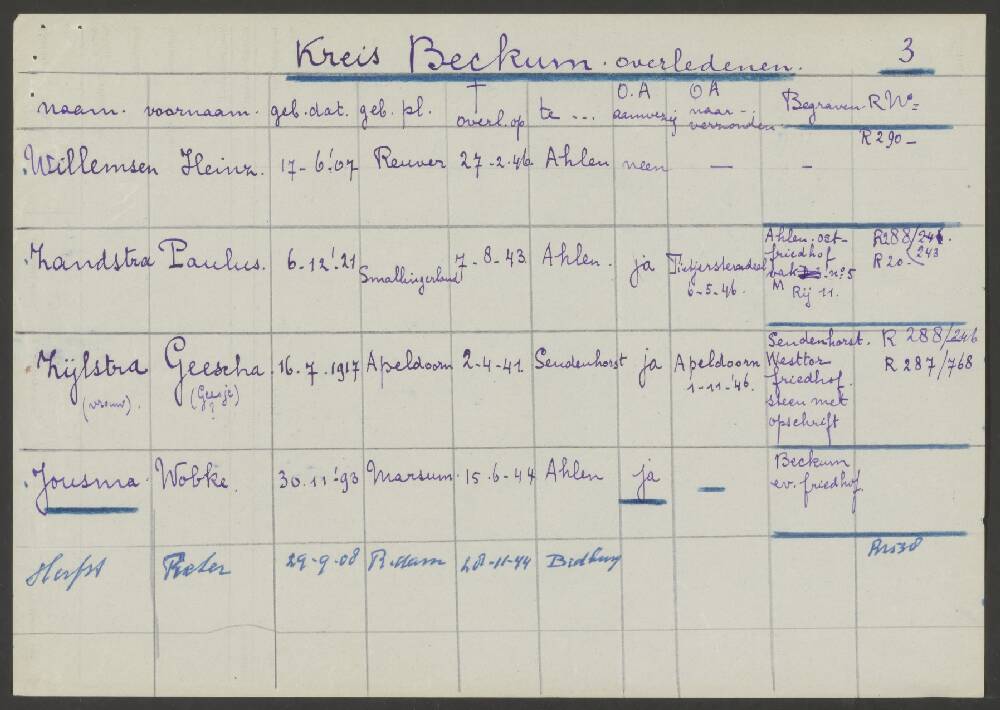 Kreis Beckum. overledenen. 3
naam. voornaam. geb. dat. geb. pl. † overl. op te ... O.A aanwezig OA naar verzonden Begraven R Nº=
Willemsen Heinz. 17-6-'07 Reuver 27-2-46 Ahlen neen — — R290-
Zandstra Paulus. 6-12-'21 Smallingerland 7-8-43. Ahlen. ja
6-5-46.
Ahlen. ost-
friedhof
nº 5
M Rij 11.
R288/246.
R20- 243
Zijlstra (vrouw). Geescha (Geesje) ? 16.7.1917 Apeldoorn 2-4-41. Sendenhorst ja Apeldoorn 1-11-'46.
Sendenhorst.
Westtor
friedhof.
steen met
opschrift
R 288/246
R 287/768
Jousma. Wobke. 30.11.'93 Marsum. 15.6-44 Ahlen ja —
Beckum
ev. friedhof.
Herfst Pieter 29-9-08 R.dam 28-11-44